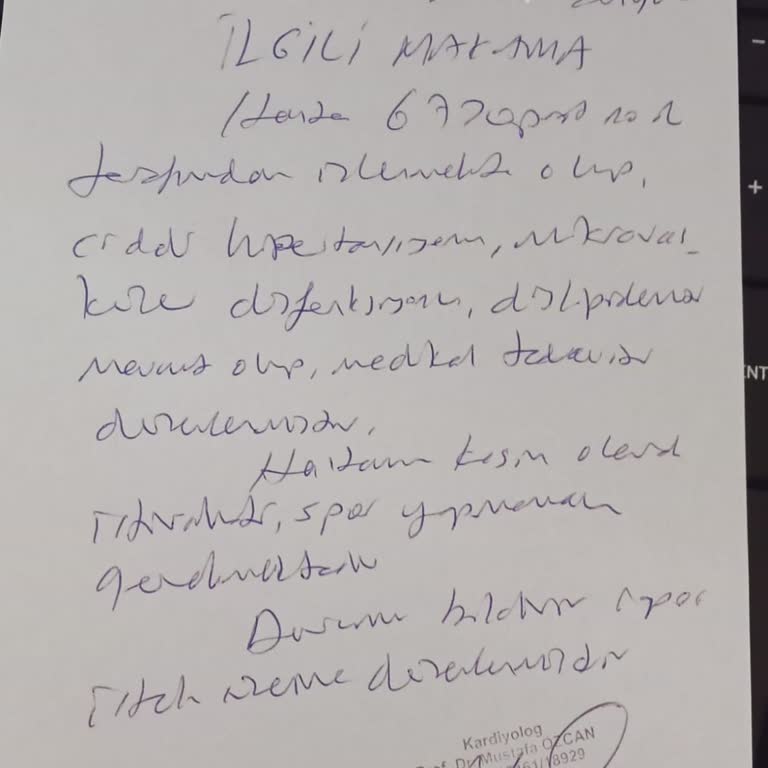 İLGİLİ MAKAMA
Hasta 67 no'l
tarafımdan izlenmekte olup,
ciddi hipertansiyon, mikrovas-
küler disfonksiyonu, dislipidemi
mevcut olup, medikal tedavisi
düzenlenmiştir.
Hastanın kesin olarak
istirahatı, spor yapmaması
gerekmektedir
Durumu bildirir rapor
istek üzerine düzenlenmiştir
Kardiyolog
Dr. Mustafa ÖZCAN
18929